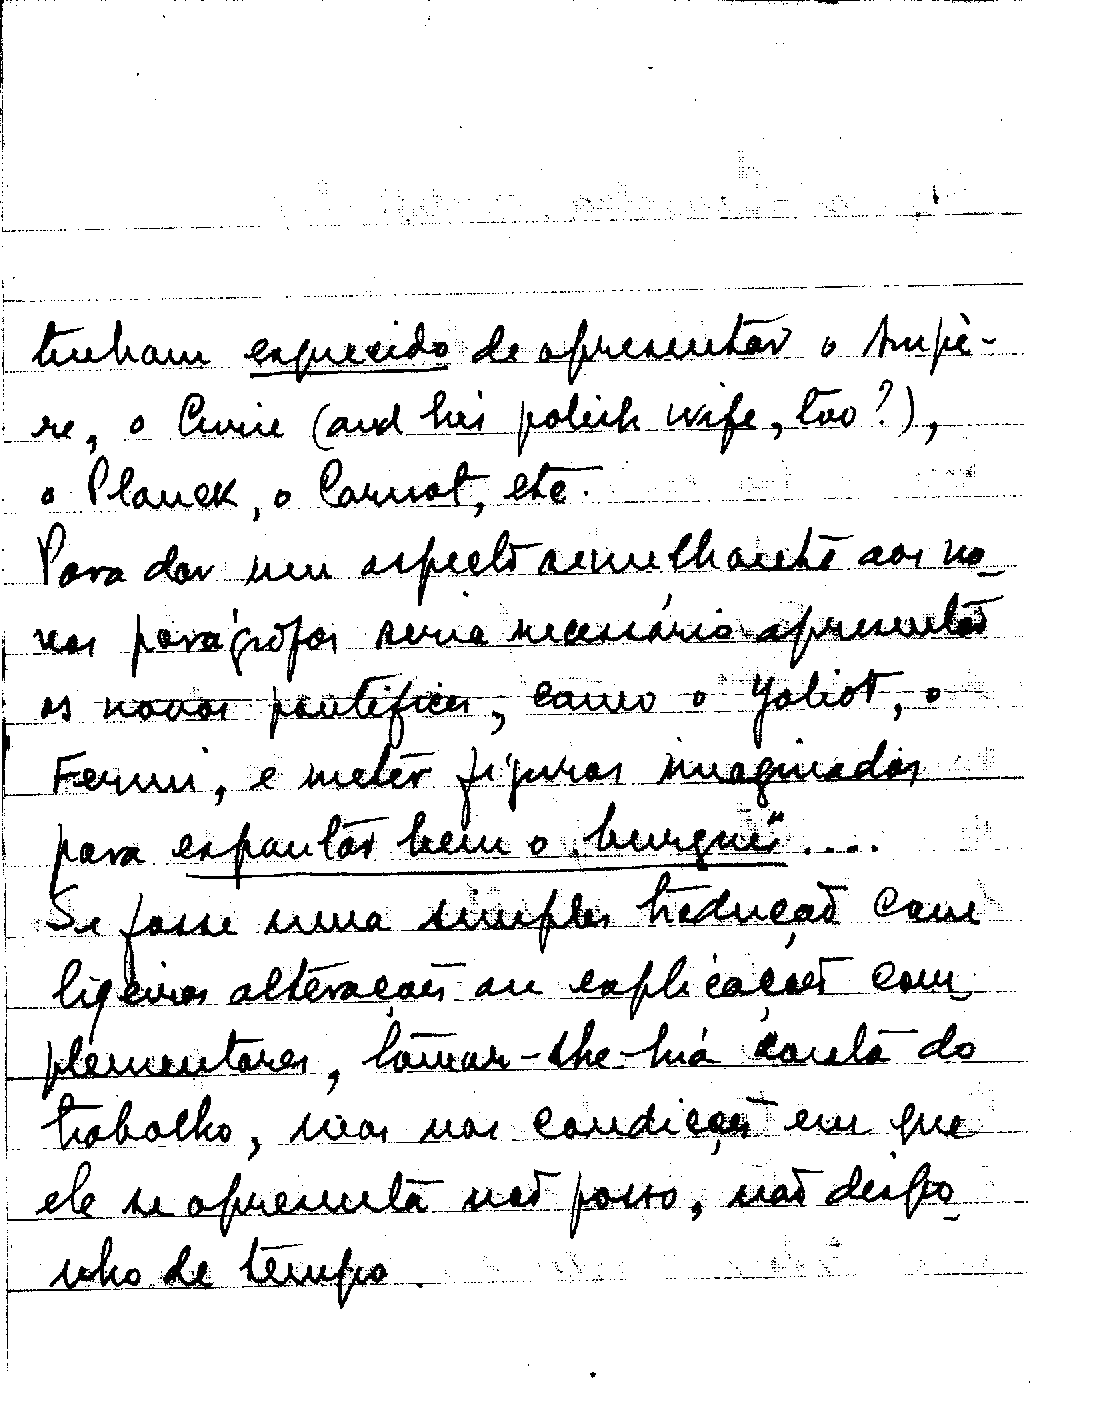 tenham esquecido de apresentar o Ampè-
re, o Curie (and his polish wife, too?),
o Planck, o Carnot, etc.
Para dar um aspecto semelhante aos no-
vos parágrafos seria necessário apresentar
os novos pontífices, como o Joliot, o
Fermi, e meter figuras imaginadas
para espantar bem o "burguês"....
Se fosse uma simples tradução com
ligeiras alterações ou explicações com-
plementares, tomar-lhe-hiá conta do
trabalho, mas nas condições em que
ele se apresenta não posso, não dispo-
nho de tempo.